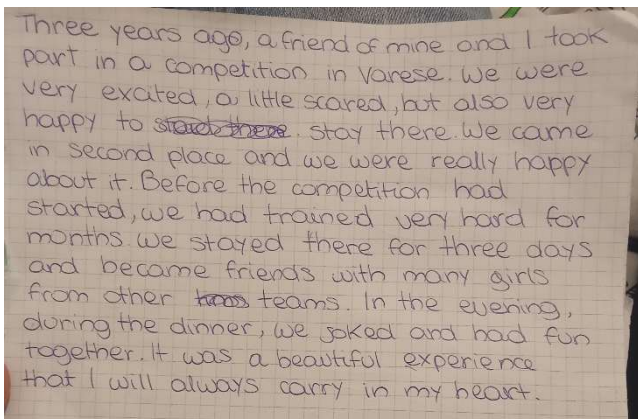 Three years ago, a friend of mine and I took
part in a competition in Varese. We were
very excited, a little scared, but also very
happy to stay there. We came
in second place and we were really happy
about it. Before the competition had
started, we had trained very hard for
months. We stayed there for three days
and became friends with many girls
from other teams. In the evening,
during the dinner, we joked and had fun
together. It was a beautiful experience
that I will always carry in my heart.